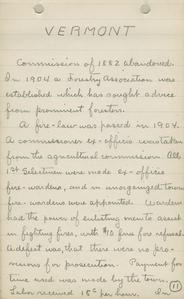 VERMONT
Commission of 1882 abandoned.
In 1904 a Forestry Association was
established which has sought advice
from prominent foresters.
A fire-law was passed in 1904.
A commissioner ex-officio was taken
from the agricultural commission. All
1st Selectmen were made ex-officio
fire-wardens, and in unorganized towns
fire-wardens were appointed. Wardens
had the power of enlisting men to assist
in fighting fires, with $10 fine for refusal.
A defect was, that there were no pro-
visions for prosecution. Payment for
time used was made by the town.
Labor received 15¢ per hour.
11